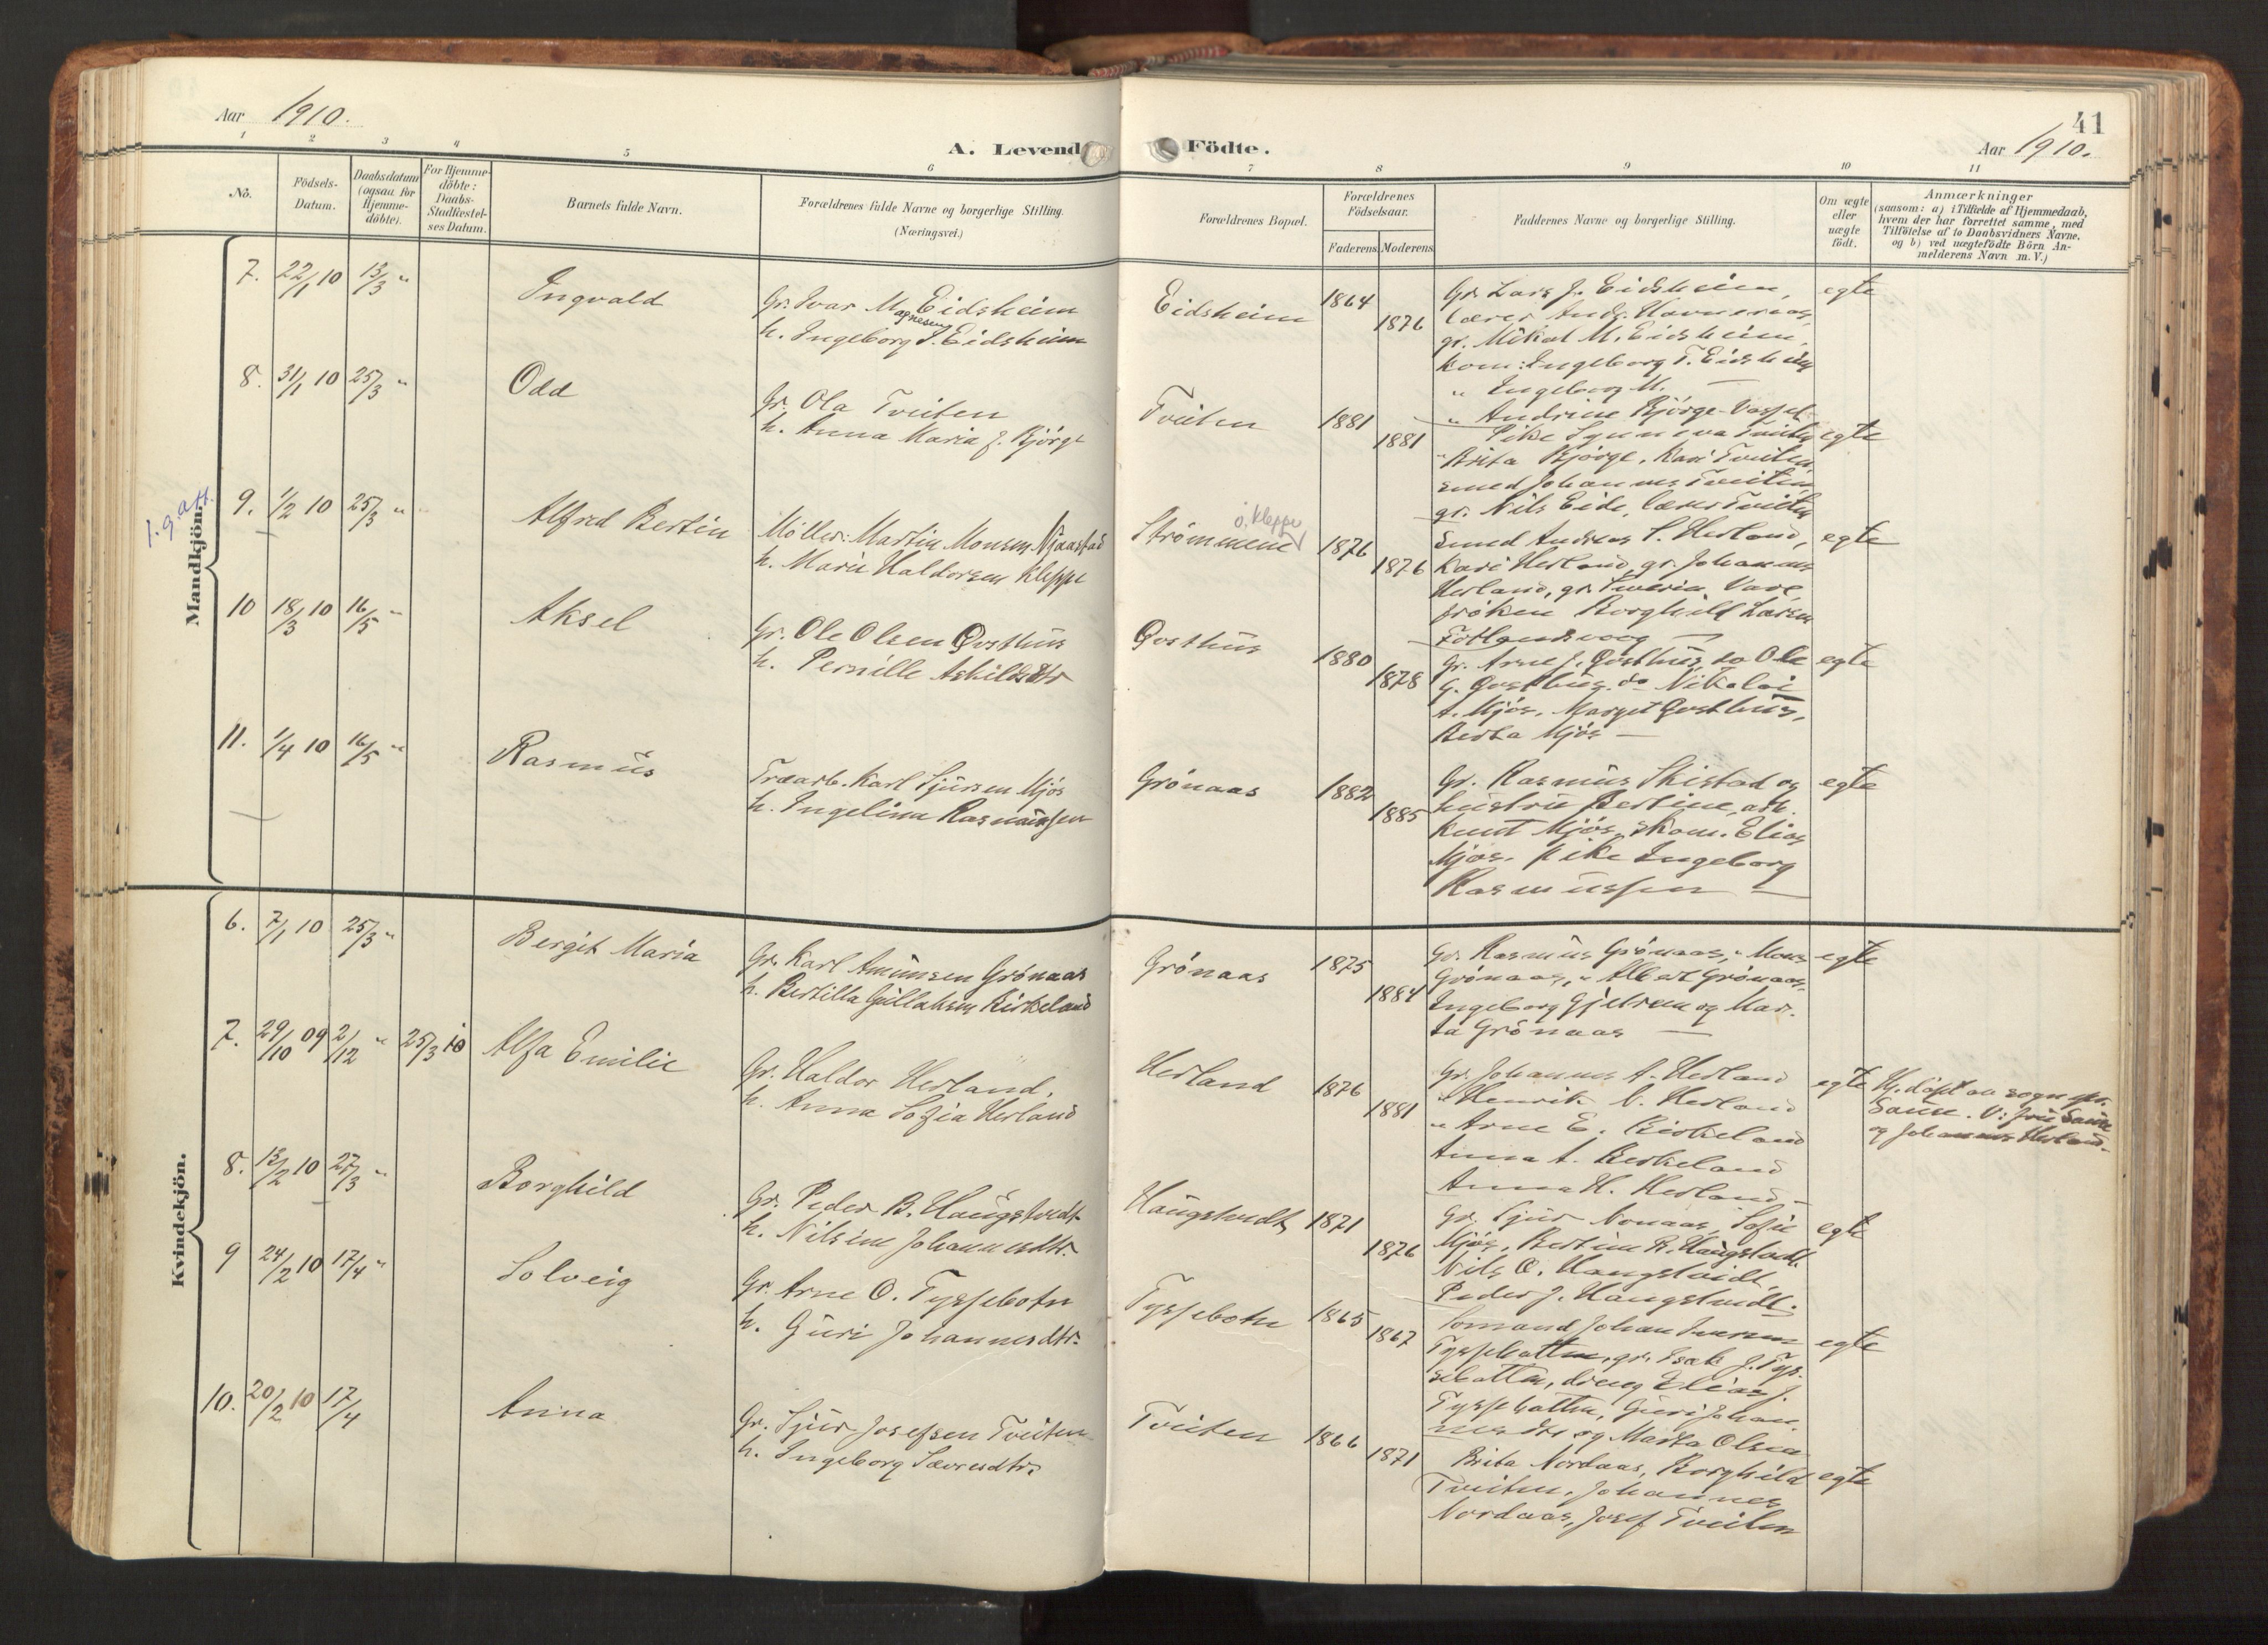 Aar 1910.
A. Levende Födte.
41
Aar 1910.
1 2 3 4 5 6 7 8 9 10 11
No.
Födsels-
Datum.
Daabsdatum
(ogsaa for
Hjemme-
döbte).
For Hjemme-
döbte:
Daabs-
Stadfæstel-
ses Datum.
Barnets fulde Navn.
Forældrenes fulde Navne og borgerlige Stilling.
(Næringsvei.)
Forældrenes Bopæl.
Forældrenes
Födselsaar.
Faderens Moderens
Faddernes Navne og borgerlige Stilling.
Om ægte
eller
uægte
födt.
Anmærkninger
(saasom: a) i Tilfælde af Hjemmedaab,
hvem der har forrettet samme, med
Tilföielse af to Daabsvidners Navne.
og b) ved uægtefödte Börn An-
melderens Navn m. V.)
Mandkjön.
7. 22/1 10 13/3 " Ingvald
Gr. Ivar Magnesen Eidsheim
h. Ingeborg J. Eidsheim
Eidsheim 1864 1876
Gr. Lars J. Eidsheim,
Lærer Andr. Havneraas,
gr. Mikal M. Eidsheim,
kom: Ingeborg T. Eidsheim
" Ingeborg M. —
" Andrine Bjørge Vassel
egte
8. 31/1 10 25/3 " Odd
Gr. Ola Tveiten
h. Anna Maria J. Bjørge
Tveiten 1881 1881
Pike Synneva Tveiten
" Brita Bjørge, Kari Tveiten,
smed Johannes Tveiten,
gr. Nils Eide, lærer Tveiten
egte
9. 1/2 10 25/3 " Alfred Bertin
Møller: Martin Monsen Njaastad
h. Marie Haldorsen Kleppe
Strømmen 1876 1876
ö. Kleppe
Smed Andreas S. Herland,
Kari Herland, gr. Johannes
Herland, gr.
frøken Borghild Larsen
Fotlandsvaag —
egte
10 18/3 10 16/5 " Aksel
Gr. Ole Olsen Qosthus
h. Pernille Askildsdtr
Qosthus 1880 1878
Gr. Arne J. Qosthus, do Ole
G. Qosthus, do Nikolai
A. Mjøs, Marget Qosthus,
Berta Mjøs —
egte
11. 1/4 10 16/5 " Rasmus
Træarb. Karl Sjursen Mjøs
h. Ingelina Rasmussen
Grønaas 1882 1885
Gr. Rasmus Skistad og
hustru Bertine, arb.
Knut Mjøs, skom. Elias
Mjøs, pike Ingeborg
Rasmussen —
egte
Kvindekjön.
6. 7/1 10 25/3 " Bergit Maria
Gr. Karl Amunsen Grønaas
h. Bertilla Gullaksen Birkeland
Grønaas 1875 1884
Gr. Rasmus Grønaas, " Mons
Grønaas, " Albert Grønaas,
Ingeborg Gjelsvem og Mar-
ta Grønaas —
egte
7. 29/10 09 2/12 " 25/3 10 Alfa Emilie
Gr. Haldor Herland,
h. Anna Sofia Herland
Herland 1876 1881
Gr. Johannes A. Herland
" Henrik O. Herland
" Arne E. Birkeland
Anna A. Birkeland
Anna H. Herland —
egte
Hj. döpt av sogn.pr.
Saue. V: fru Saue
og Johannes Herland.
8. 13/2 10 27/3 " Borghild
Gr. Peder B. Haugstvedt
h. Nilsine Johannesdtr.
Haugstvedt 1871 1876
Gr. Sjur Nonaas, Sofie
Mjøs, Bertine B. Haugstvedt,
Nils O. Haugstvedt,
Peder J. Haugstvedt.
egte
9 24/2 10 17/4 " Solveig
Gr. Arne O. Tyssebotn
h. Guri Johannesdtr.
Tyssebotn 1865 1867
Somand Johan Iversen
Tyssebotten, gr. Isak J. Tys-
sebotten, dreng Elias J.
Tyssebotten, Guri Johan-
nesdtr og Marta Olsen
egte
10. 20/2 10 17/4 Anna
Gr. Sjur Josefsen Tveiten
h. Ingeborg Sævresdtr.
Tveiten 1866 1871
Brita Nordaas, Borghild
Tveiten, Johannes
Nordaas, Josef Tveiten
egte